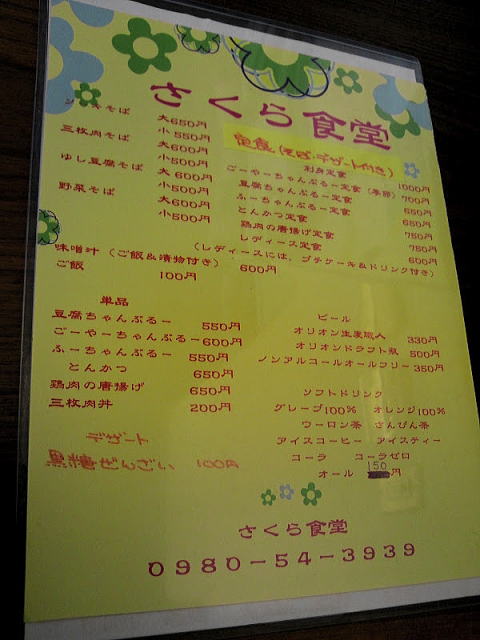 さくら食堂
ソーキそば 大650円
小550円
三枚肉そば 大600円
小500円
ゆし豆腐そば 大600円
小500円
野菜そば 大600円
小500円
味噌汁(ご飯&漬物付き) 600円
ご飯 100円
定食(そば・デザート付き)
刺身定食 1000円
ごーやーちゃんぷるー定食(季節) 700円
豆腐ちゃんぷるー定食 650円
ふーちゃんぷるー定食 650円
とんかつ定食 750円
鶏肉の唐揚げ定食 750円
レディース定食 600円
(レディースには、プチケーキ&ドリンク付き)
単品
豆腐ちゃんぷるー 550円
ごーやーちゃんぷるー 600円
ふーちゃんぷるー 550円
とんかつ 650円
鶏肉の唐揚げ 650円
三枚肉丼 200円
デザート
黒糖ぜんざい 100円
ビール
オリオン生麦職人 330円
オリオンドラフト瓶 500円
ノンアルコールオールフリー 350円
ソフトドリンク
グレープ100% オレンジ100%
ウーロン茶 さんぴん茶
アイスコーヒー アイスティー
コーラ コーラゼロ
オール 150円
さくら食堂
0980-54-3939